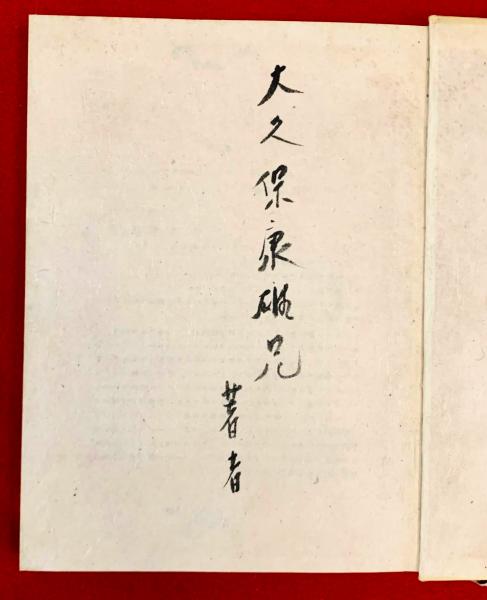 大久保康雄兄
著者